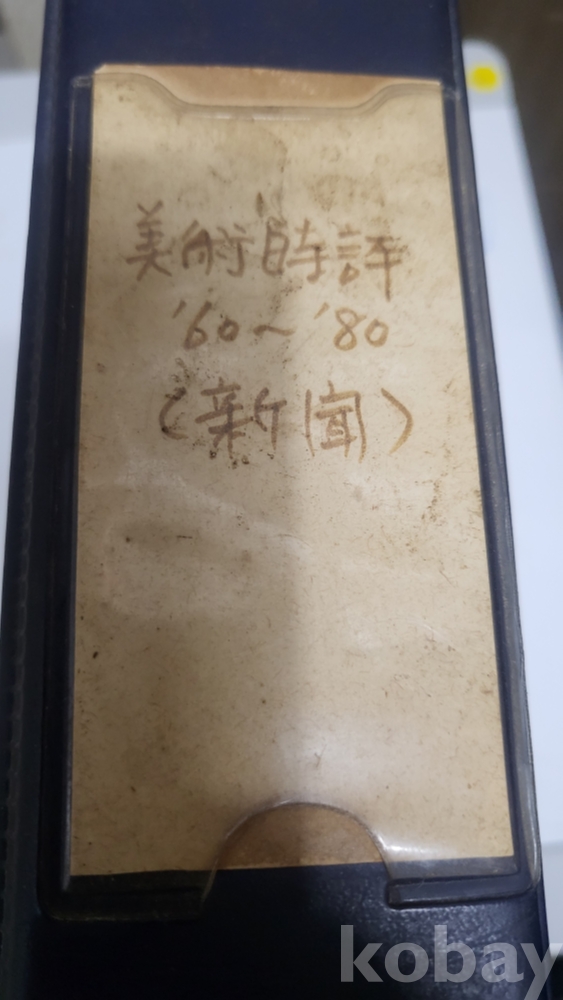 美術時評
'60～'80
(新聞)
kobay